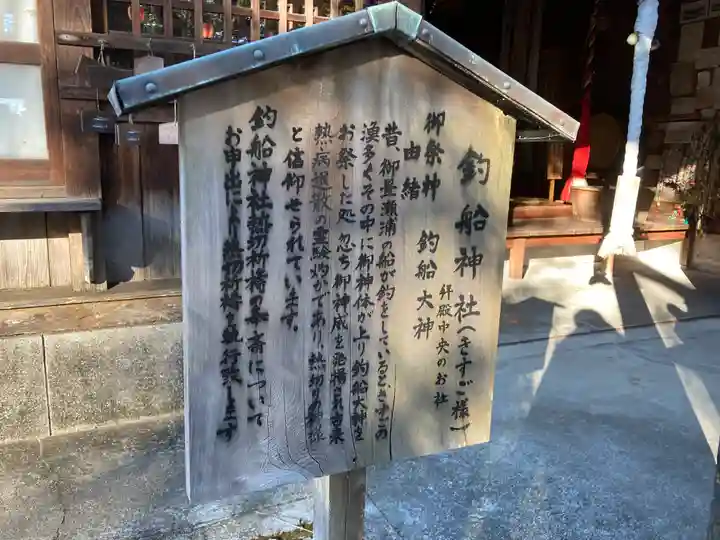 釣船神社(きすご様)
拝殿中央のお社
御祭神 釣船大神
由緒
昔、御畳瀬浦の船が釣をしているときすごの
漁多くその中に御神体が上り釣船大神を
お祭した処、忽ち御神威を発揚され古来
熱病退散の霊験灼かであり、熱切りの神様
と信仰せられています。
釣船神社熱切祈祷の斎について
お申出により熱切祈祷を執行致します